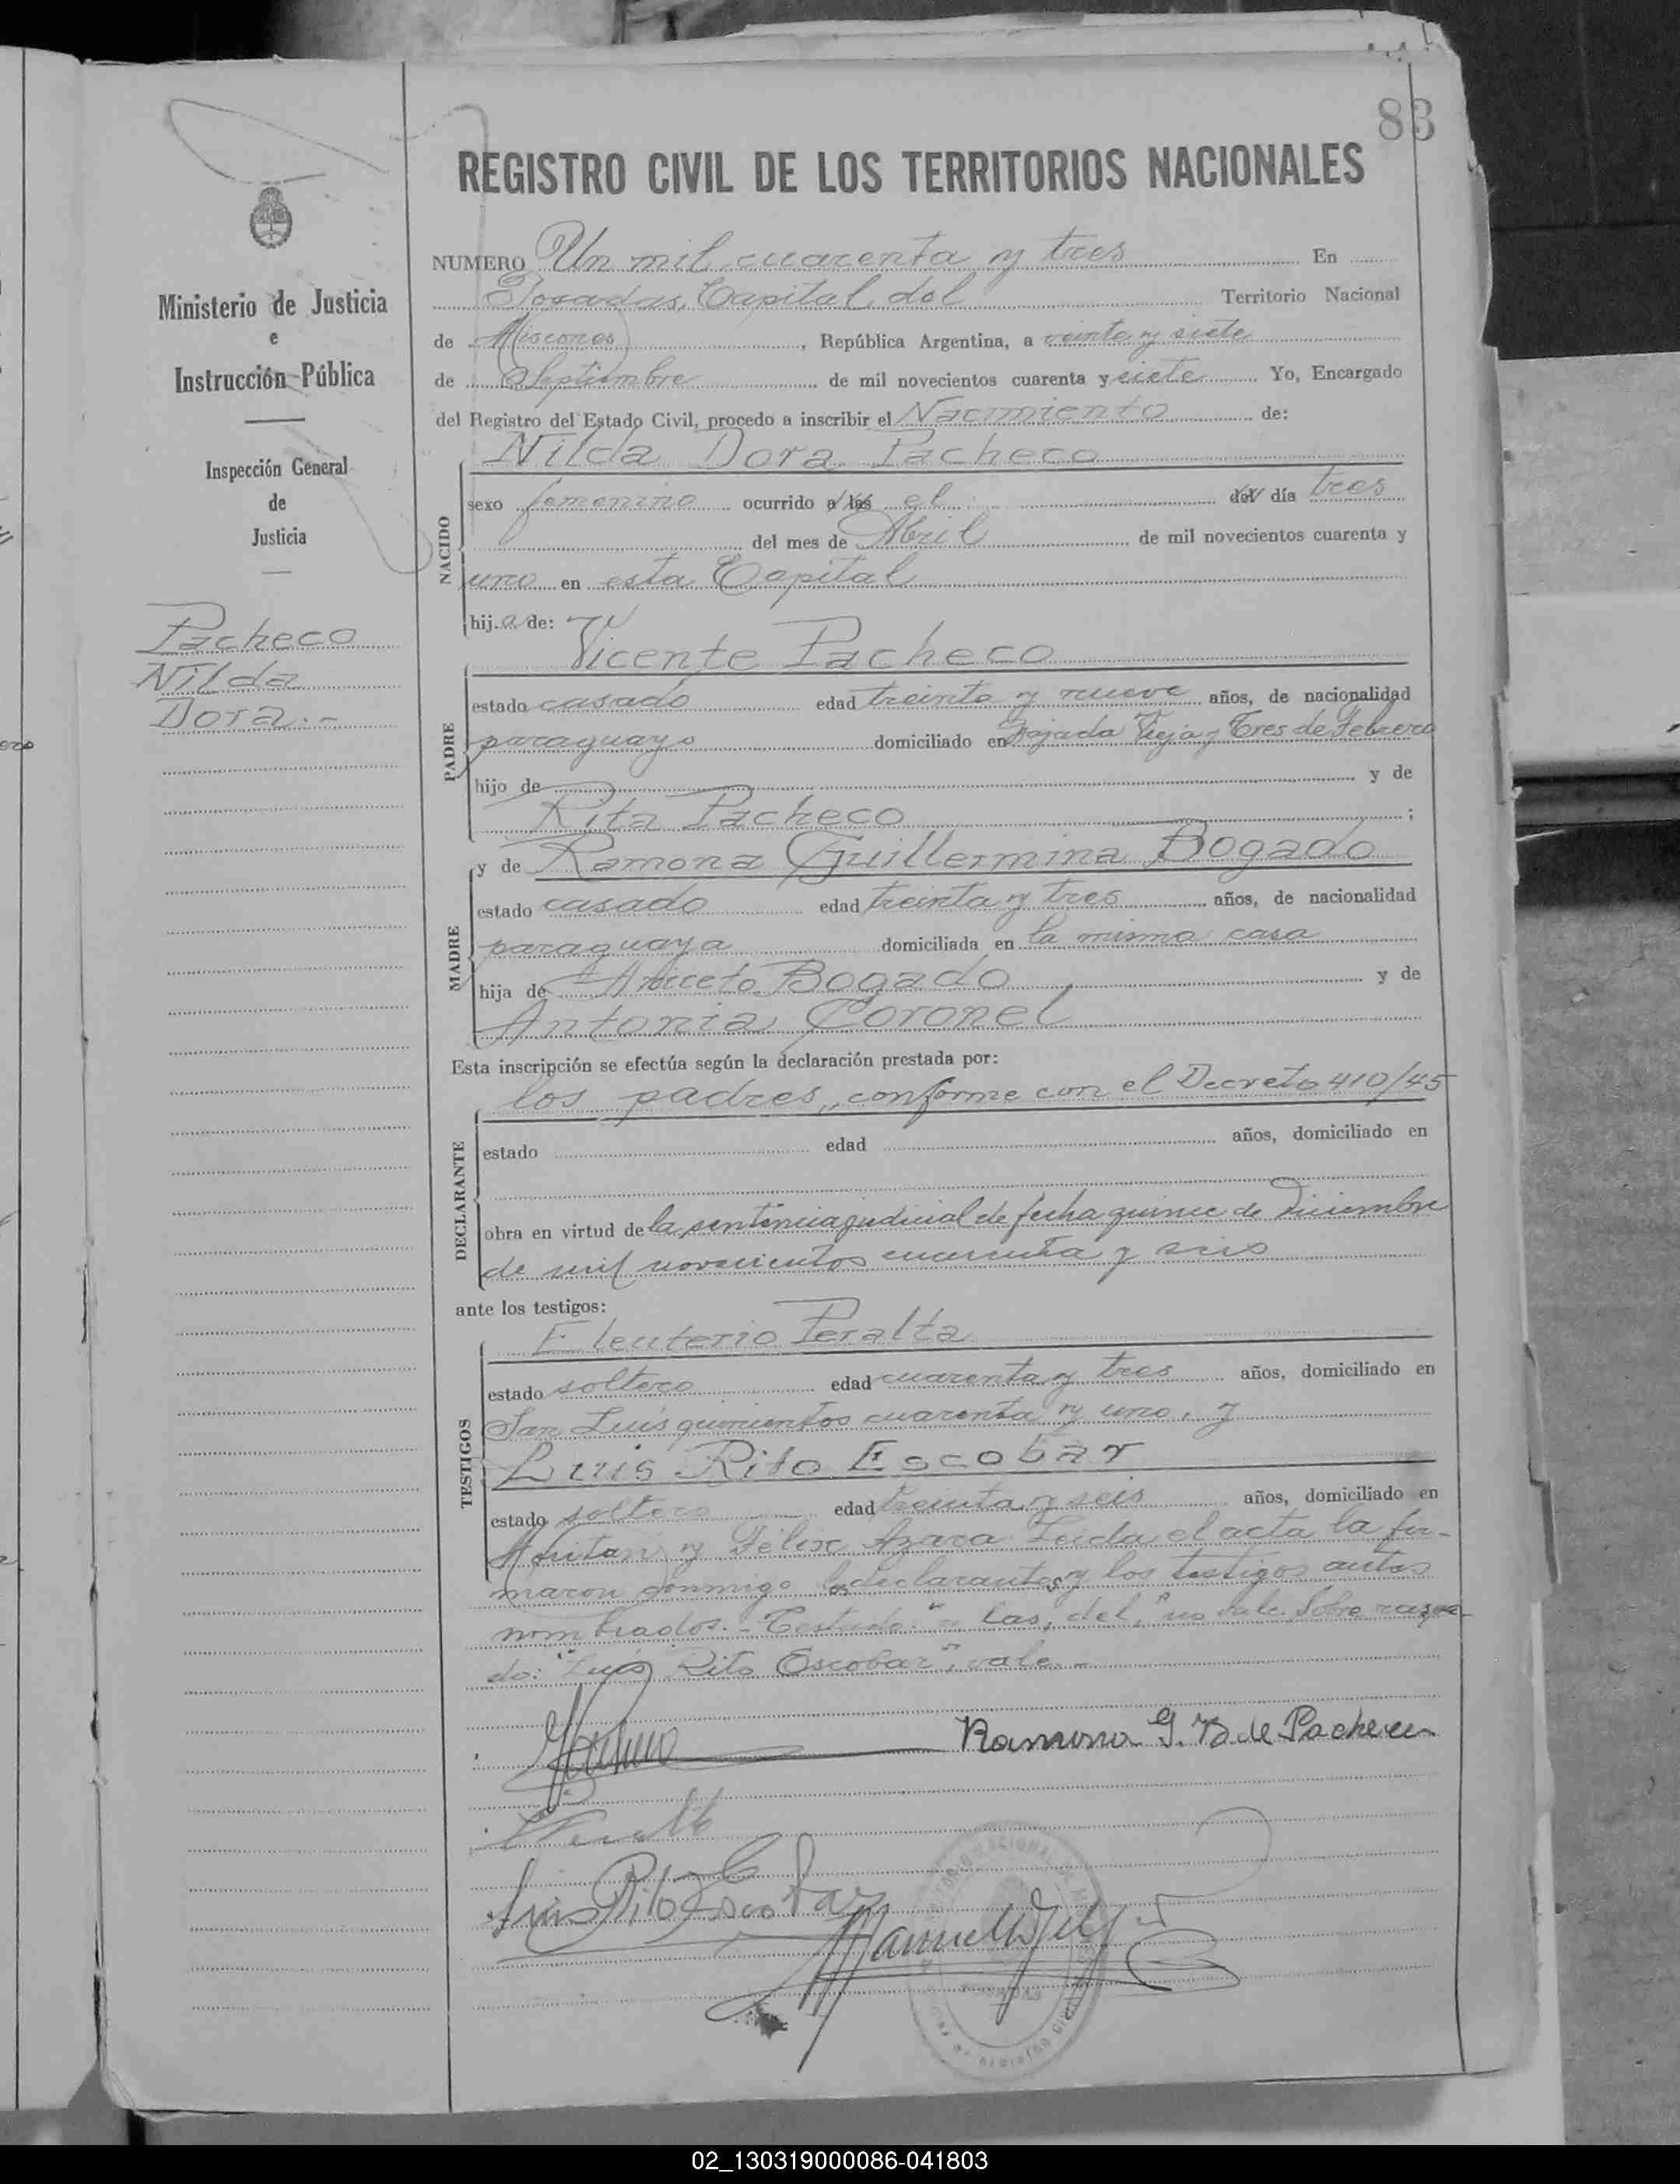 83
REGISTRO CIVIL DE LOS TERRITORIOS NACIONALES
Ministerio de Justicia
e
Instrucción Pública
Inspección General
de
Justicia
Pacheco
Nilda
Dora.-
NUMERO Un mil cuarenta y tres En
Posadas, Capital del Territorio Nacional
de Misiones, República Argentina, a veinte y siete
de Septiembre de mil novecientos cuarenta y siete Yo, Encargado
del Registro del Estado Civil, procedo a inscribir el Nacimiento de:
Nilda Dora Pacheco
NACIDO
sexo femenino ocurrido a las el del día tres
del mes de Abril de mil novecientos cuarenta y
uno en esta Capital
hija de:
Vicente Pacheco
PADRE
estado casado edad treinta y nueve años, de nacionalidad
paraguayo domiciliado en Bajada Vieja y Tres de Febrero
hijo de y de
Rita Pacheco ;
y de Ramona Guillermina Bogado
MADRE
estado casado edad treinta y tres años, de nacionalidad
paraguaya domiciliada en la misma casa
hija de Aniceto Bogado y de
Antonia Coronel
Esta inscripción se efectúa según la declaración prestada por:
los padres, conforme con el Decreto 410/45
DECLARANTE
estado edad años, domiciliado en
obra en virtud de la sentencia judicial de fecha quince de Diciembre
de mil novecientos cuarenta y seis
ante los testigos:
Eleuterio Peralta
TESTIGOS
estado soltero edad cuarenta y tres años, domiciliado en
San Luis quinientos cuarenta y uno, y
Luis Rito Escobar
estado soltero edad treinta y seis años, domiciliado en
y Félix Azara Leida el acta la fir-
maron conmigo los declarantes y los testigos antes
nombrados.- Testado: "a las, del," no vale. Sobre raspa-
do: "Luis Rito Escobar", vale.-
Ramona G. B de Pacheco
Luis Rito Escobar
02_130319000086-041803